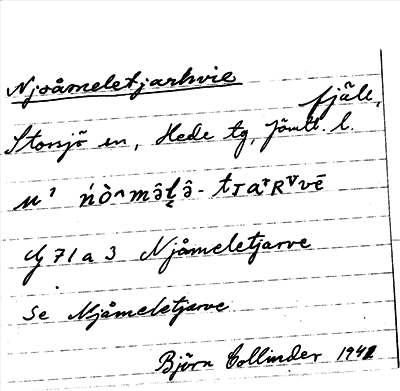 Njoåmeletjarhvie
fjäll,
Storsjö sn, Hede tg, Jämtl. l.
Njåmeletjarve
71 a 3 Njåmeletjarve
Se Njåmeletjarve
Björn Collinder 1942